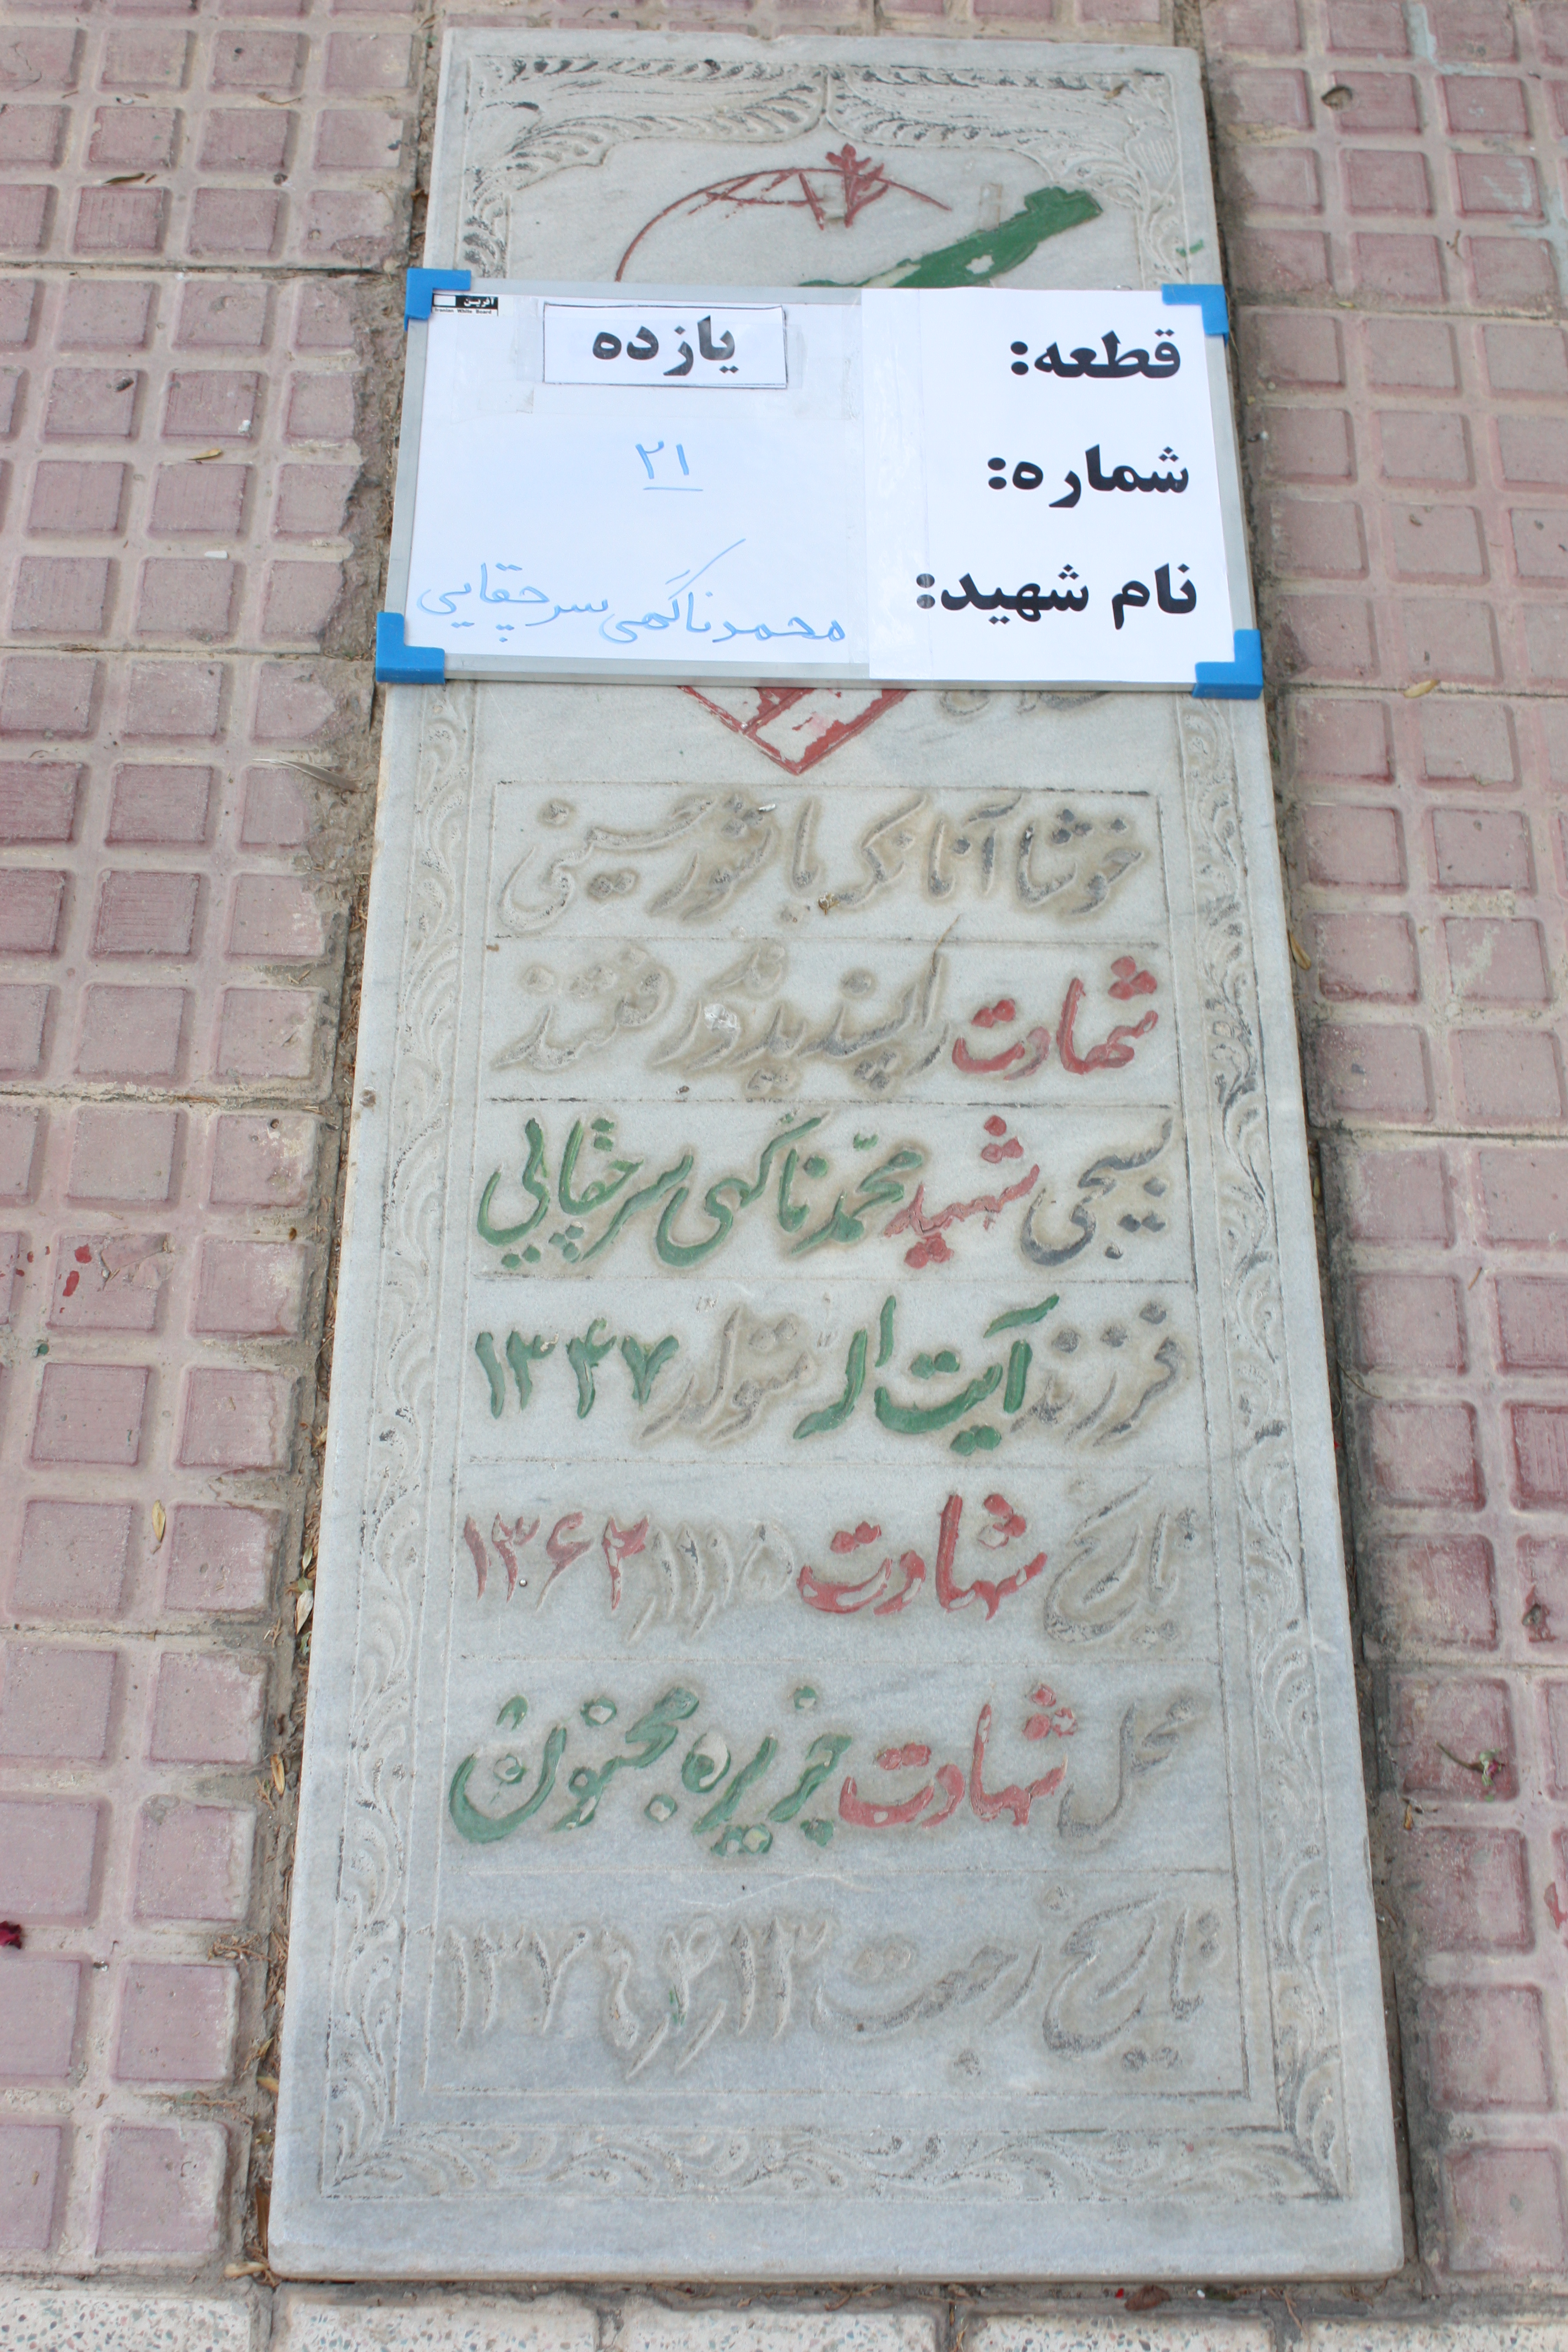 آفرین
Iranian White Board
قطعه: یازده
شماره: ۲۱
نام شهید: محمد ناگهی سرچقایی
خوشا آنانکه با شور حسینی
شهادت را پسندیدند و رفتند
بسیجی شهید محمّد ناگهی سرچقایی
فرزند آیت اله متولد ۱۳۴۷
تاریخ شهادت ۱۳۶۲/۱۲/۱۵
محل شهادت جزیره مجنون
تاریخ رجعت